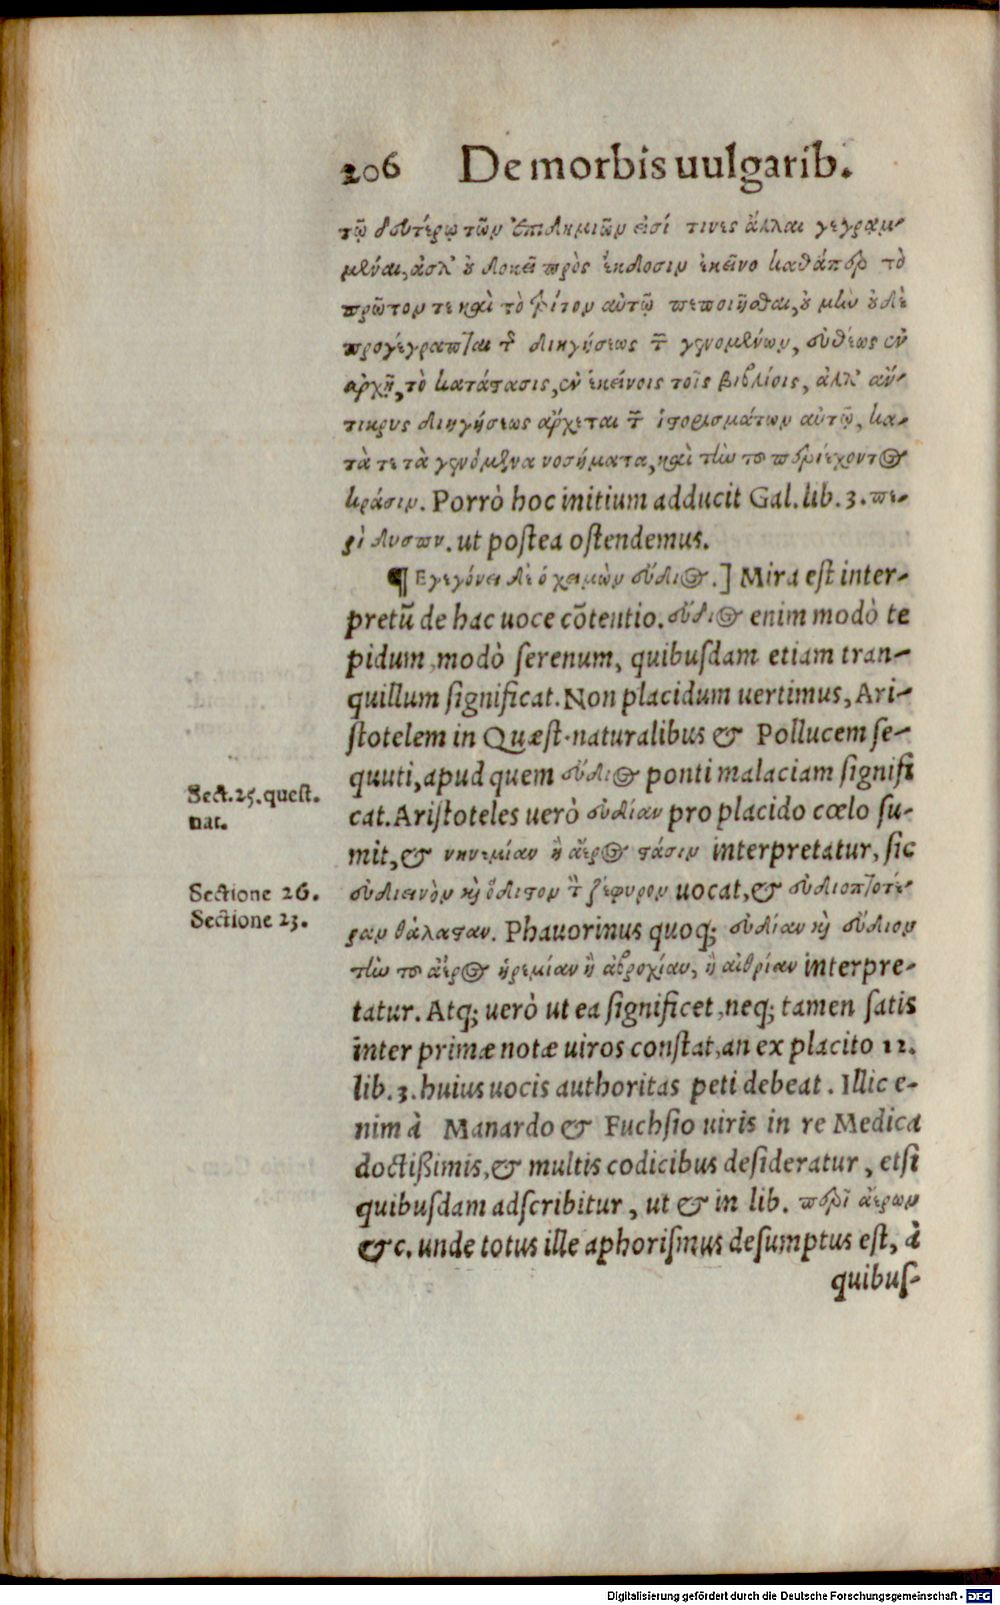 206 De morbis uulgarib.
τῷ δευτέρῳ τῶν Ἐπιδημιῶν εἰσί τινες ἄλλαι γεγραμ-
μέναι, ἀλλ' οὐ δοκεῖ πρὸς ἔκδοσιν ἐκεῖνο καθάπερ τὸ
πρῶτον τε καὶ τὸ τρίτον αὐτῷ πεποιῆσθαι, οὐ μὲν οὐδὲ
προγέγραπται τῆς διηγήσεως τῶν γενομένων, εὐθέως ἐν
ἀρχῇ, τὸ κατάστασις, ἐν ἐκείνοις τοῖς βιβλίοις, ἀλλ' ἄν-
τικρυς διηγήσεως ἄρχεται τῶν ἱστορισμάτων αὐτῷ, κα-
τὰ τε τὰ γενόμενα νοσήματα, καὶ τὴν τοῦ περιέχοντος
κράσιν. Porrò hoc initium adducit Gal. lib. 3. πε-
ρὶ δυσπν. ut postea ostendemus.
¶ Εγεγόνει δὲ ὁ χειμὼν εὔδιος.] Mira est inter-
pretũ de hac uoce cõtentio. εὔδιος enim modò te
pidum, modò serenum, quibusdam etiam tran-
quillum significat. Non placidum uertimus, Ari-
stotelem in Quæst. naturalibus & Pollucem se-
quuti, apud quem εὔδιος ponti malaciam signifi
Sect. 25. quest.
nat.
cat. Aristoteles uerò εὐδίαν pro placido cœlo su-
mit, & νηνεμίαν ἢ ἀέρος στάσιν interpretatur, sic
Sectione 26.
Sectione 23.
εὐδιεινὸν καὶ ὄλιστον τὸν ζέφυρον uocat, & εὐδιοπτοτέ-
ραν θάλασσαν. Phauorinus quoq; εὐδίαν καὶ εὔδιον
τὴν τοῦ ἀέρος ἠρεμίαν ἢ ἀβροχίαν, ἢ αἰθρίαν interpre-
tatur. Atq; uerò ut ea significet, neq; tamen satis
inter primæ notæ uiros constat, an ex placito 11.
lib. 3. huius uocis authoritas peti debeat. Illic e-
nim à Manardo & Fuchsio uiris in re Medica
doctißimis, & multis codicibus desideratur, etsi
quibusdam adscribitur, ut & in lib. περὶ ἀέρων
&c. unde totus ille aphorismus desumptus est, à
quibus-
Digitalisierung gefördert durch die Deutsche Forschungsgemeinschaft - DFG